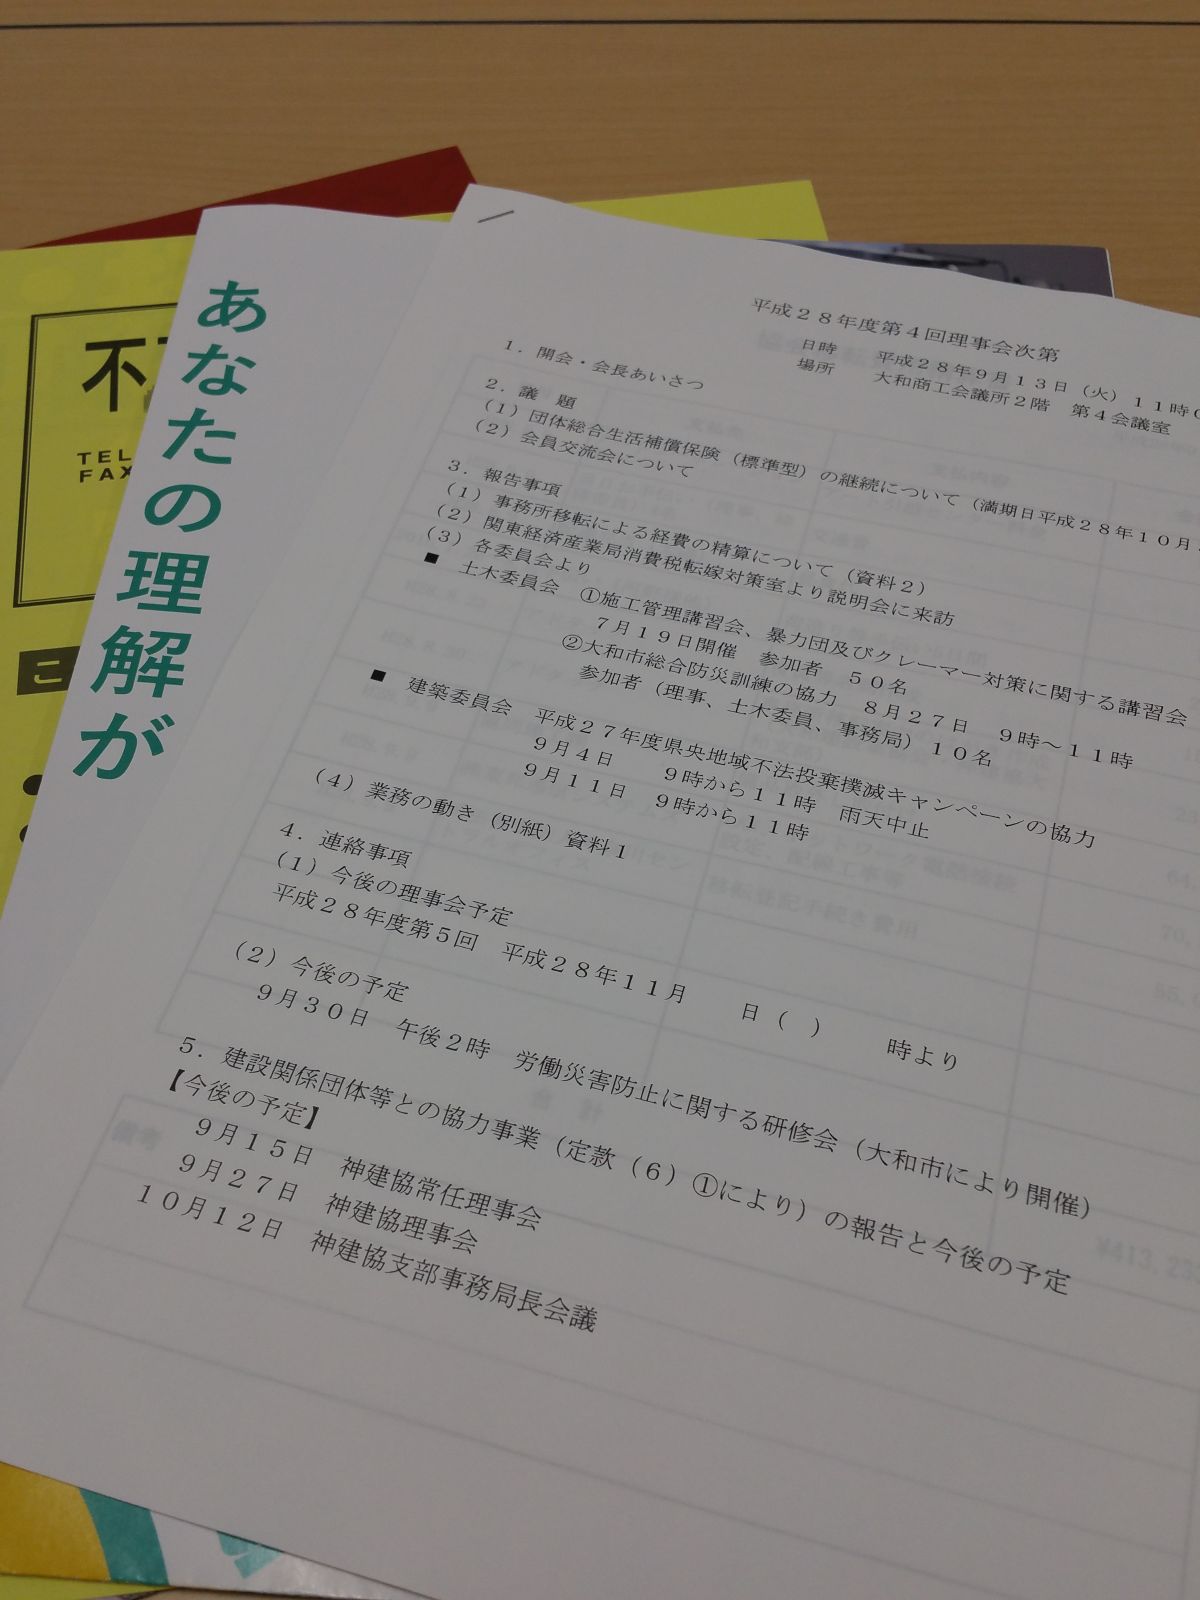 平成28年度第4回理事会次第
日時 平成28年9月13日(火)11時
場所 大和商工会議所2階 第4会議室
1.開会・会長あいさつ
2.議 題
(1)団体総合生活補償保険(標準型)の継続について(満期日平成28年10月
(2)会員交流会について
3.報告事項
(1)事務所移転による経費の精算について(資料2)
(2)関東経済産業局消費税転嫁対策室より説明会に来訪
(3)各委員会より
■ 土木委員会 ①施工管理講習会、暴力団及びクレーマー対策に関する講習会
7月19日開催 参加者 50名
②大和市総合防災訓練の協力 8月27日 9時~11時
参加者(理事、土木委員、事務局)10名
■ 建築委員会 平成27年度県央地域不法投棄撲滅キャンペーンの協力
9月4日 9時から11時 雨天中止
9月11日 9時から11時
(4)業務の動き(別紙)資料1
4.連絡事項
(1)今後の理事会予定
平成28年度第5回 平成28年11月 日( ) 時より
(2)今後の予定
9月30日 午後2時 労働災害防止に関する研修会(大和市により開催)
5.建設関係団体等との協力事業(定款(6)①により)の報告と今後の予定
【今後の予定】
9月15日 神建協常任理事会
9月27日 神建協理事会
10月12日 神建協支部事務局長会議
あなたの理解が
不
TEL
FAX
こ